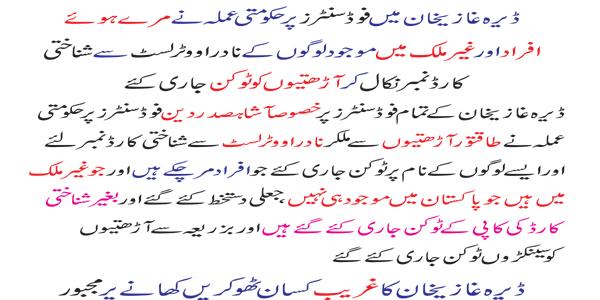 ڈیرہ غازیخان میں فوڈ سنٹرز پر حکومتی عملہ نے مرے ہوئے
افراد اور غیر ملک میں موجود لوگوں کے نادرا ووٹر لسٹ سے شناختی
کارڈ نمبر نکال کر آڑھتیوں کو ٹوکن جاری کئے
ڈیرہ غازیخان کے تمام فوڈ سنٹرز پر خصوصاً شاہ صدر دین فوڈ سنٹرز پر حکومتی
عملہ نے طاقتور آڑھتیوں سے ملکر نادرا ووٹر لسٹ سے شناختی کارڈ نمبر لئے
اور ایسے لوگوں کے نام پر ٹوکن جاری کئے جو افراد مر چکے ہیں اور جو غیر ملک
میں ہیں جو پاکستان میں موجود ہی نہیں، جعلی دستخط کئے گئے اور بغیر شناختی
کارڈ کی کاپی کے ٹوکن جاری کئے گئے ہیں اور بزریعہ سے آڑھتیوں
کو سینکڑوں ٹوکن جاری کئے گئے
ڈیرہ غازیخان کا غریب کسان ٹھوکریں کھانے پر مجبور